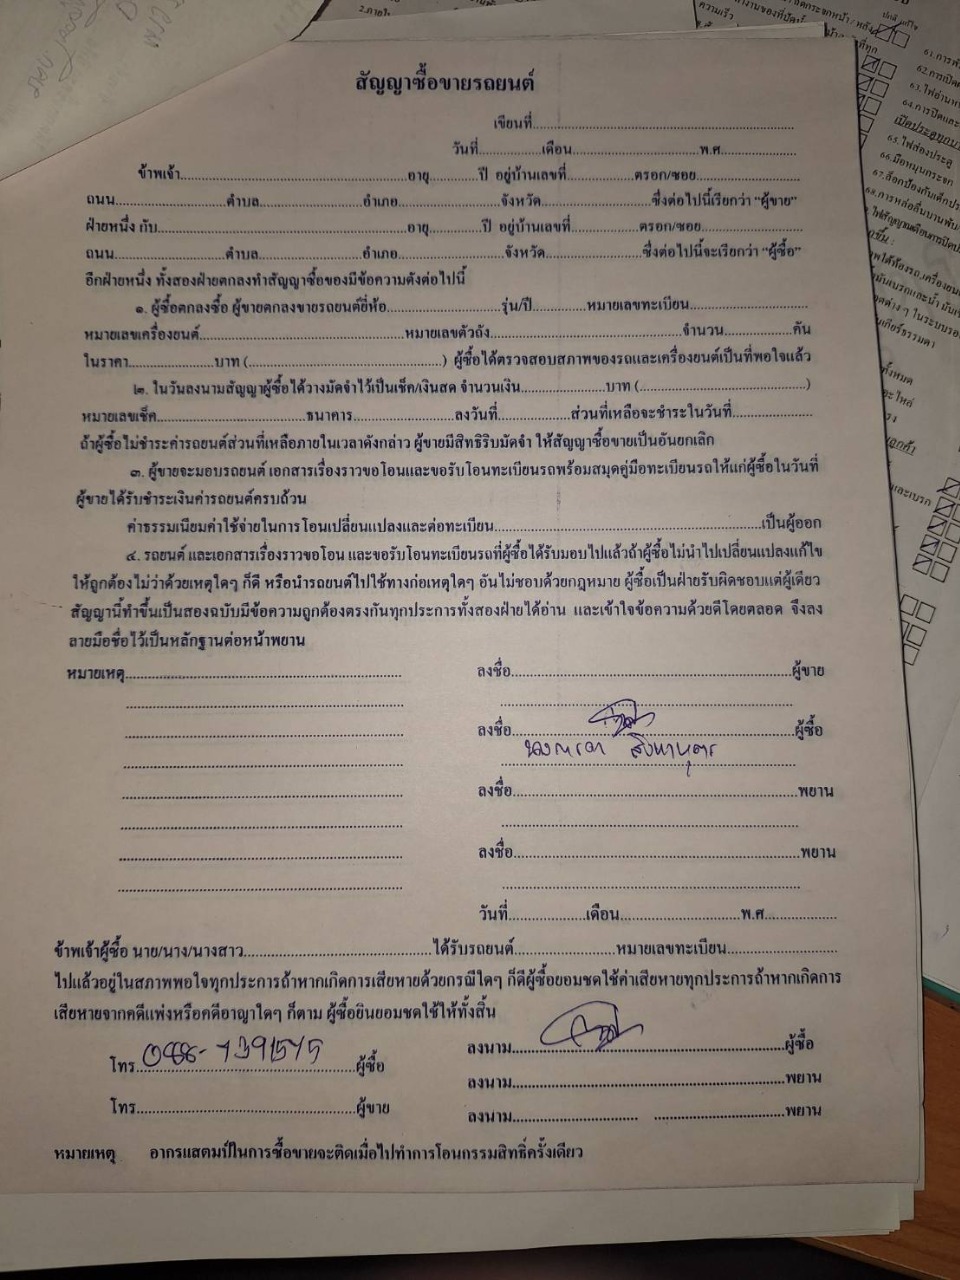 สัญญาซื้อขายรถยนต์
เขียนที่..........
วันที่..........เดือน..........พ.ศ..........
ข้าพเจ้า..........อายุ..........ปี อยู่บ้านเลขที่..........ตรอก/ซอย..........
ถนน..........ตำบล..........อำเภอ..........จังหวัด..........ซึ่งต่อไปนี้เรียกว่า "ผู้ขาย"
ฝ่ายหนึ่ง กับ..........อายุ..........ปี อยู่บ้านเลขที่..........ตรอก/ซอย..........
ถนน..........ตำบล..........อำเภอ..........จังหวัด..........ซึ่งต่อไปนี้จะเรียกว่า "ผู้ซื้อ"
อีกฝ่ายหนึ่ง ทั้งสองฝ่ายตกลงทำสัญญาซื้อของมีข้อความดังต่อไปนี้
๑. ผู้ซื้อตกลงซื้อ ผู้ขายตกลงขายรถยนต์ยี่ห้อ..........รุ่น/ปี..........หมายเลขทะเบียน..........
หมายเลขเครื่องยนต์..........หมายเลขตัวถัง..........จำนวน..........คัน
ในราคา..........บาท (..........) ผู้ซื้อได้ตรวจสอบสภาพของรถและเครื่องยนต์เป็นที่พอใจแล้ว
๒. ในวันลงนามสัญญาผู้ซื้อได้วางมัดจำไว้เป็นเช็ค/เงินสด จำนวนเงิน..........บาท (..........)
หมายเลขเช็ค..........ธนาคาร..........ลงวันที่..........ส่วนที่เหลือจะชำระในวันที่..........
ถ้าผู้ซื้อไม่ชำระค่ารถยนต์ส่วนที่เหลือภายในเวลาดังกล่าว ผู้ขายมีสิทธิริบมัดจำ ให้สัญญาซื้อขายเป็นอันยกเลิก
๓. ผู้ขายจะมอบรถยนต์ เอกสารเรื่องราวขอโอนและขอรับโอนทะเบียนรถพร้อมสมุดคู่มือทะเบียนรถให้แก่ผู้ซื้อในวันที่
ผู้ขายได้รับชำระเงินค่ารถยนต์ครบถ้วน
ค่าธรรมเนียมค่าใช้จ่ายในการโอนเปลี่ยนแปลงและต่อทะเบียน..........เป็นผู้ออก
๔. รถยนต์ และเอกสารเรื่องราวขอโอน และขอรับโอนทะเบียนรถที่ผู้ซื้อได้รับมอบไปแล้วถ้าผู้ซื้อไม่นำไปเปลี่ยนแปลงแก้ไข
ให้ถูกต้องไม่ว่าด้วยเหตุใดๆ ก็ดี หรือนำรถยนต์ไปใช้ทางก่อเหตุใดๆ อันไม่ชอบด้วยกฎหมาย ผู้ซื้อเป็นฝ่ายรับผิดชอบแต่ผู้เดียว
สัญญานี้ทำขึ้นเป็นสองฉบับมีข้อความถูกต้องตรงกันทุกประการทั้งสองฝ่ายได้อ่าน และเข้าใจข้อความด้วยดีโดยตลอด จึงลง
ลายมือชื่อไว้เป็นหลักฐานต่อหน้าพยาน
หมายเหตุ..........
ลงชื่อ..........ผู้ขาย
ลงชื่อ..........ผู้ซื้อ
สิงหาบุตร
ลงชื่อ..........พยาน
ลงชื่อ..........พยาน
วันที่..........เดือน..........พ.ศ..........
ข้าพเจ้าผู้ซื้อ นาย/นาง/นางสาว..........ได้รับรถยนต์..........หมายเลขทะเบียน..........
ไปแล้วอยู่ในสภาพพอใจทุกประการถ้าหากเกิดการเสียหายด้วยกรณีใดๆ ก็ดีผู้ซื้อยอมชดใช้ค่าเสียหายทุกประการถ้าหากเกิดการ
เสียหายจากคดีแพ่งหรือคดีอาญาใดๆ ก็ตาม ผู้ซื้อยินยอมชดใช้ให้ทั้งสิ้น
โทร..........ผู้ซื้อ
ลงนาม..........ผู้ซื้อ
ลงนาม..........พยาน
โทร..........ผู้ขาย
ลงนาม..........พยาน
หมายเหตุ อากรแสตมป์ในการซื้อขายจะติดเมื่อไปทำการโอนกรรมสิทธิ์ครั้งเดียว